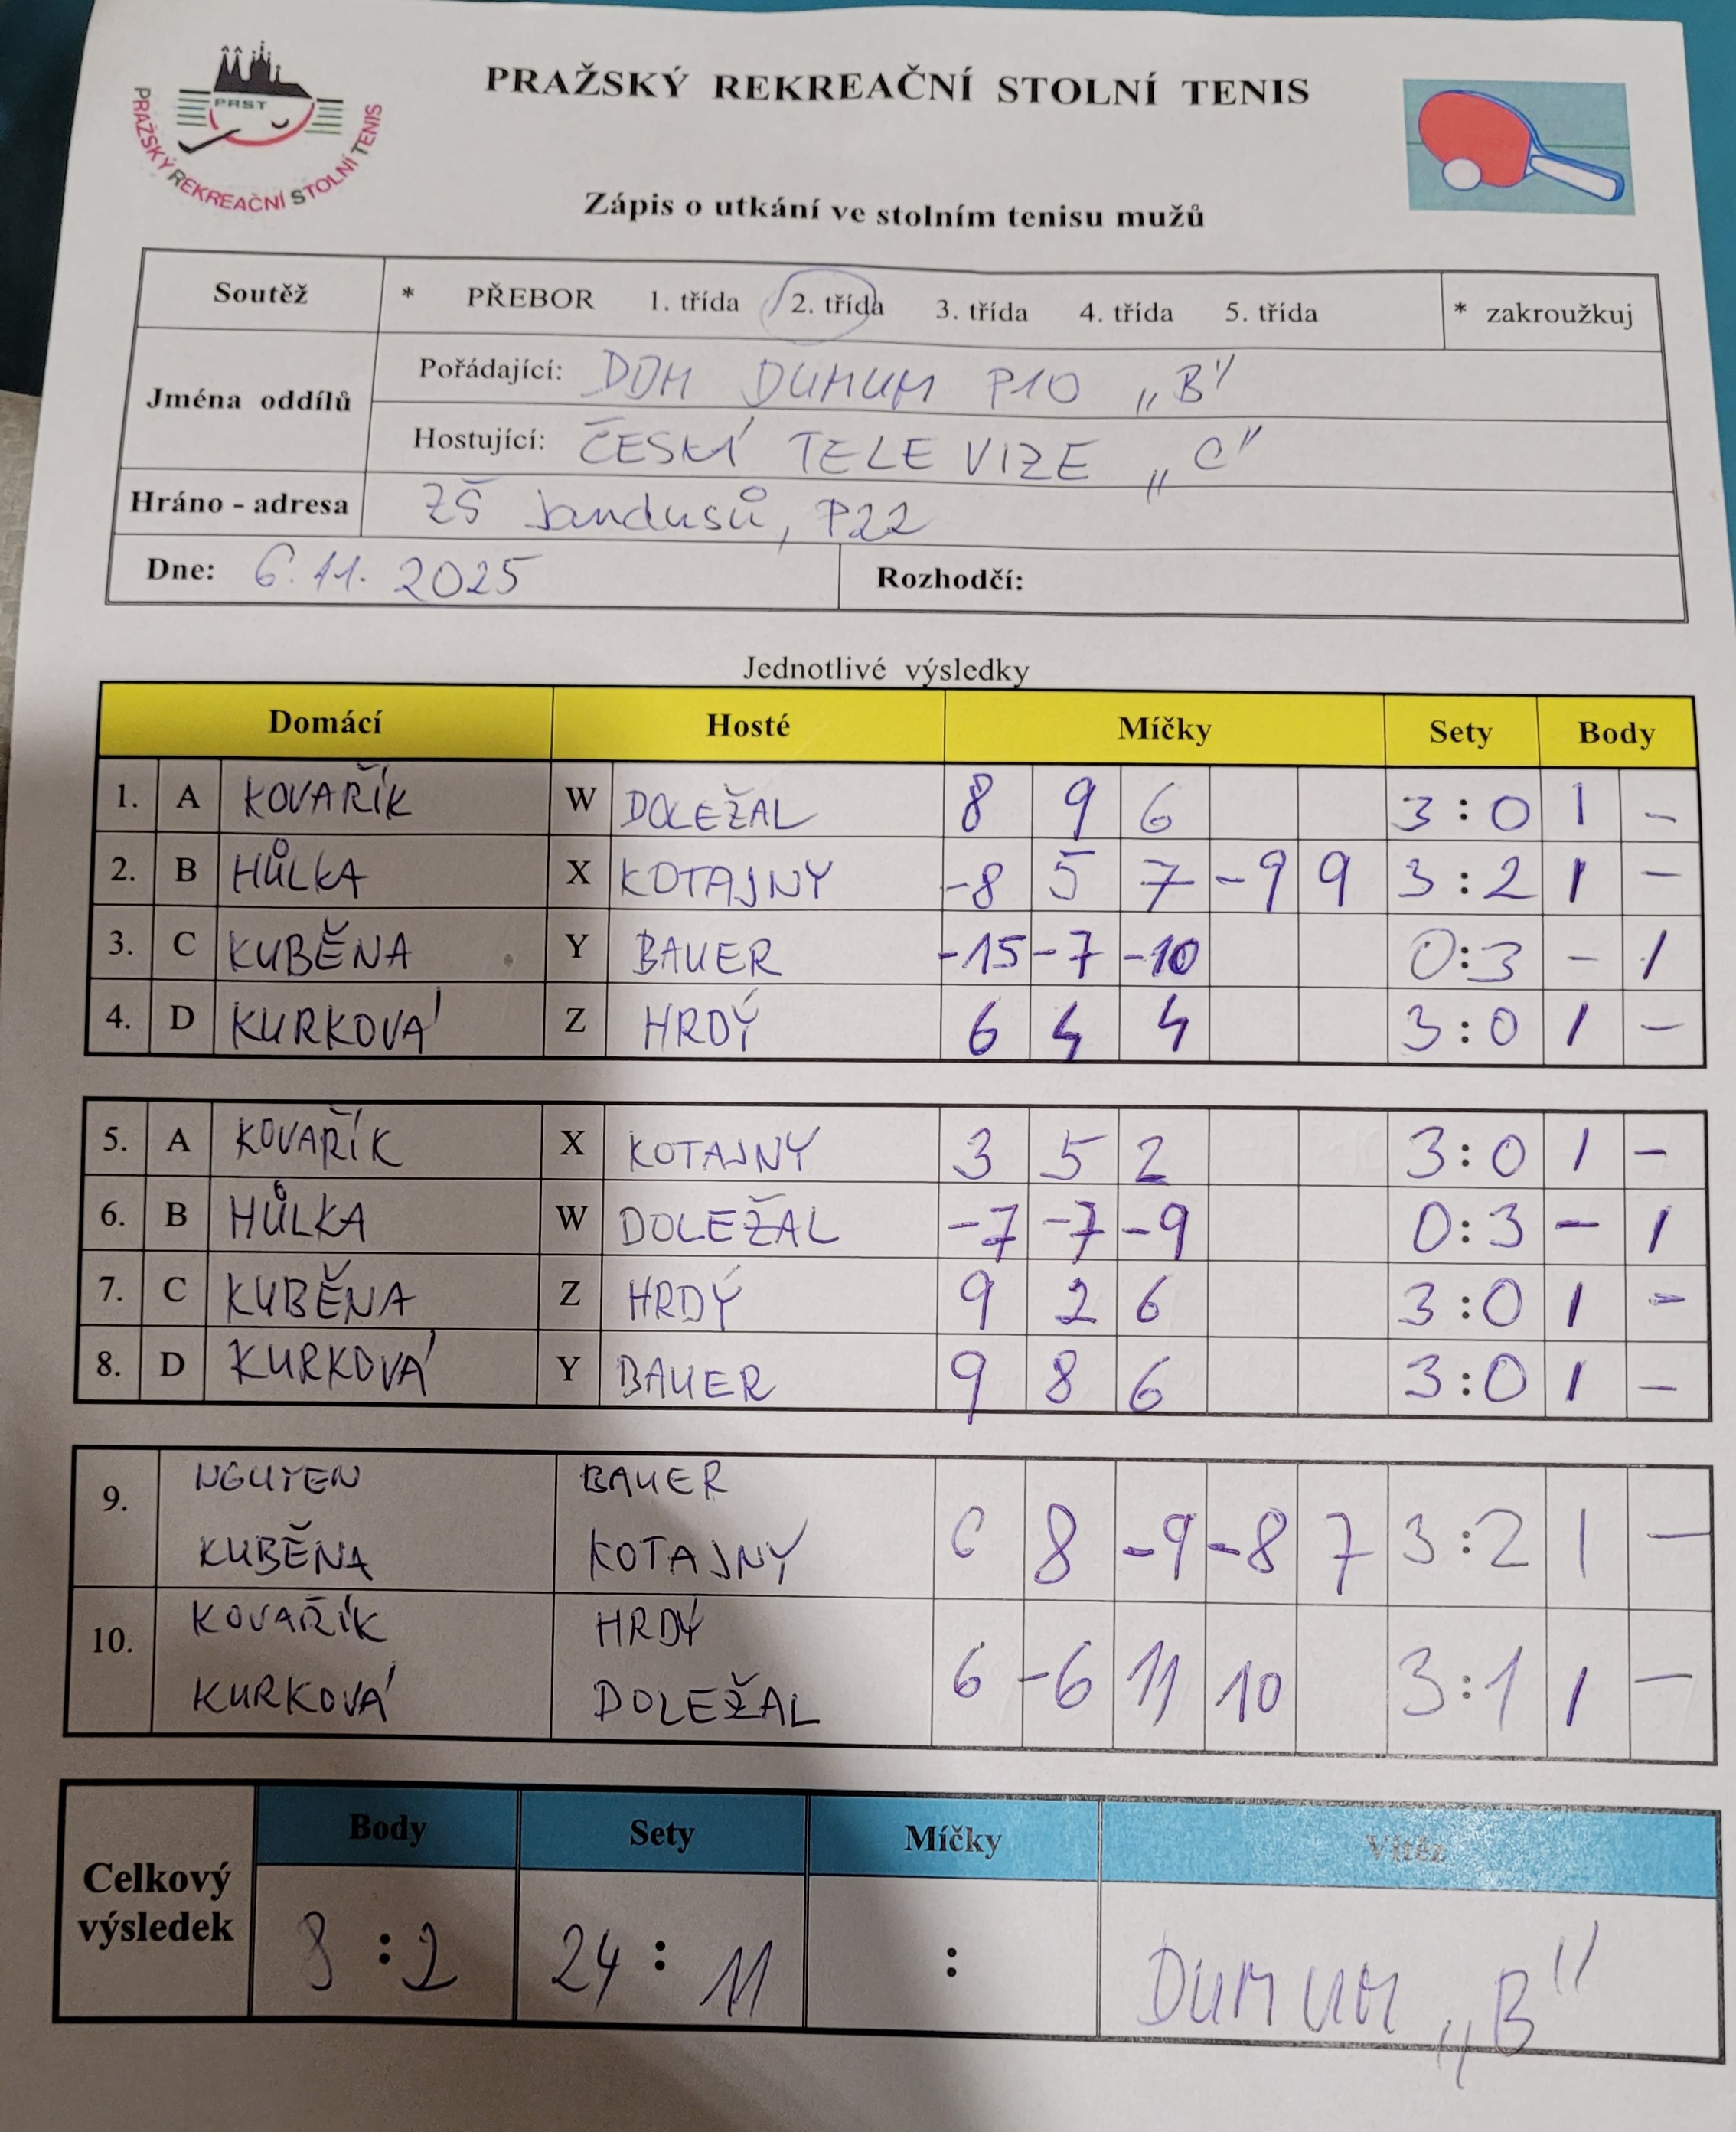 PRAŽSKÝ REKREAČNÍ STOLNÍ TENIS
PRST
PRAŽSKÝ REKREAČNÍ STOLNÍ TENIS
Zápis o utkání ve stolním tenisu mužů
Soutěž * PŘEBOR 1. třída 2. třída 3. třída 4. třída 5. třída * zakroužkuj
Jména oddílů
Pořádající: DDM DUMUM P10 „B"
Hostující: ČESKÁ TELEVIZE „C"
Hráno - adresa ZŠ Jandusů, P22
Dne: 6.11. 2025 Rozhodčí:
Jednotlivé výsledky
Domácí Hosté Míčky Sety Body
1. A KOVAŘÍK W DOLEŽAL 8 9 6 3:0 1 -
2. B HŮLKA X KOTAJNÝ -8 5 7 -9 9 3:2 1 -
3. C KUBĚNA Y BAUER -15 -7 -10 0:3 - 1
4. D KURKOVÁ Z HRDÝ 6 4 4 3:0 1 -
5. A KOVAŘÍK X KOTAJNÝ 3 5 2 3:0 1 -
6. B HŮLKA W DOLEŽAL -7 -7 -9 0:3 - 1
7. C KUBĚNA Z HRDÝ 9 2 6 3:0 1 -
8. D KURKOVÁ Y BAUER 9 8 6 3:0 1 -
NGUYEN BAUER
9. 6 8 -9 -8 7 3:2 1 -
KUBĚNA KOTAJNÝ
KOVAŘÍK HRDÝ
10. 6 -6 11 10 3:1 1 -
KURKOVÁ DOLEŽAL
Body Sety Míčky Vítěz
Celkový výsledek 8:2 24:11 : DUMUM „B"